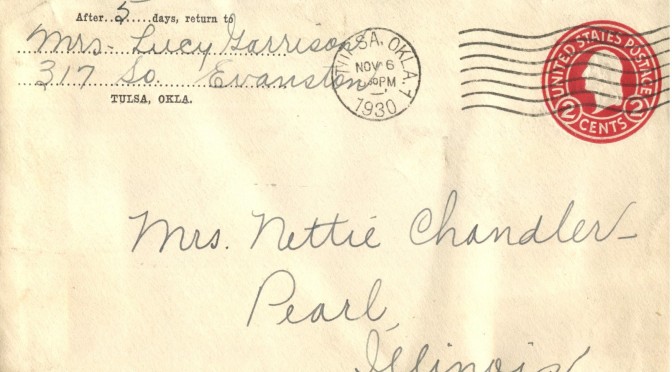 After 5 days, return to
Mrs. Lucy Garrison
317 So. Evanston
TULSA, OKLA.
TULSA, OKLA. 1
NOV 6
PM
1930
UNITED STATES POSTAGE
2 CENTS 2
Mrs. Nettie Chandler
Pearl,
Illinois